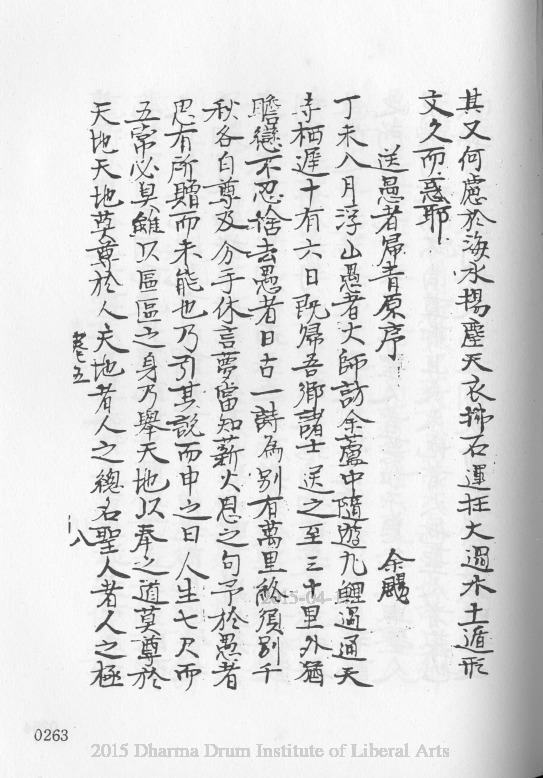 其又何慮於海水揚塵天衣拂石運在大過木土遁形
文久而惑耶
送愚者歸青原序
余颺
丁未八月浮山愚者大師訪余蘆中隨遊九鯉過通天
寺栖遲十有六日既歸吾鄉諸士送之至三十里外猶
瞻戀不忍捨去愚者曰古一詩為別有萬里終須別千
秋各自尊及分手休言夢當知薪火恩之句予於愚者
思有所贈而未能也乃引其說而申之曰人生七尺而
五常必具雖以區區之身乃舉天地以奉之道莫尊於
天地天地莫尊於人天地者人之總名聖人者人之極
卷五
八
0263
2015-04-
2015 Dharma Drum Institute of Liberal Arts